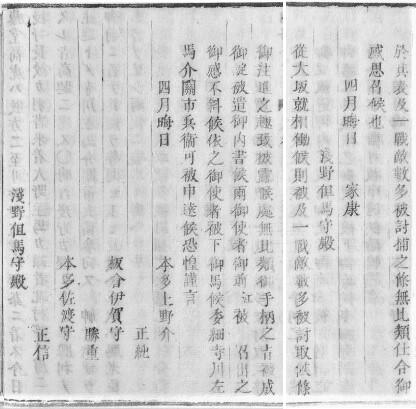 於其表及一戰敵數多被討捕之條無比類仕合御
感思召候也
四月晦日　家康
淺野但馬守殿
從大坂就相働候則被及一戰敵數多被討取候條
御注進之趣致披露候處無比類御手柄之旨被成
御淀被遣御内書候兩御使者御前 被 召出之
御感不斜候依之御使者被下御馬候委細寺川左
馬介關市兵衛可被申達候恐惶謹言
四月晦日　本多上野介
正純
板倉伊賀守
勝重
本多佐渡守
正信
淺野但馬守殿